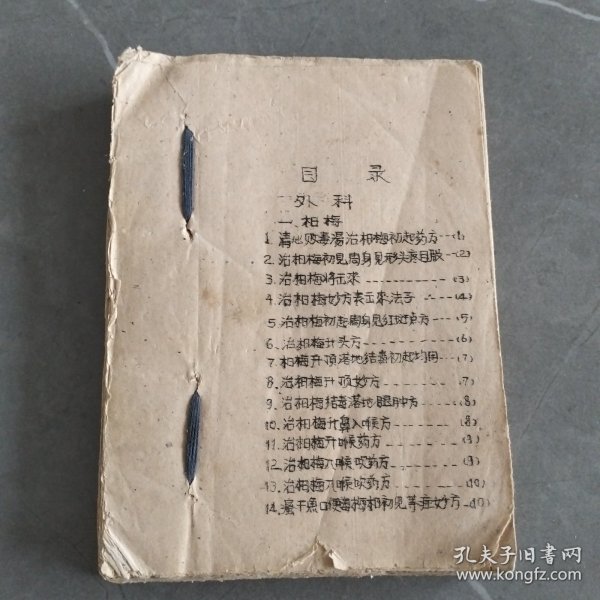 目录
外科
一、柏梅
1. 清心败毒湯治柏梅初起药方---(1)
2. 治柏梅初见周身见形头疼目眩--(2)
3. 治柏梅将元來--------(3)
4. 治柏梅妙方表元來法子----(4)
5. 治柏梅初起周身见红斑点方--(5)
6. 治柏梅升头方--------(6)
7. 柏梅升顶落地结毒初起均用--(7)
8. 治柏梅升顶妙方-------(7)
9. 治柏梅结毒落地腿肿方----(8)
10. 治柏梅升鼻入喉方------(8)
11. 治柏梅升喉药方-------(9)
12. 治柏梅入喉吹药方------(9)
13. 治柏梅入喉吹药方------(10)
14. 鱼口便毒柏梅初见等症妙方--(10)
孔夫子旧书网
www.kongfz.com